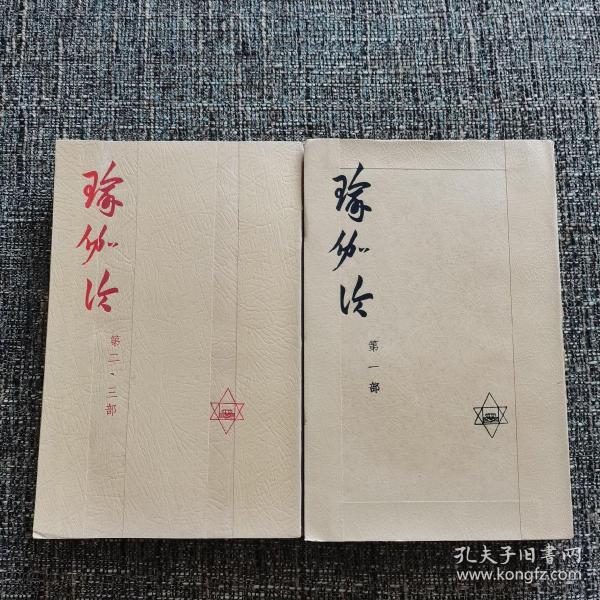 瑜伽论
第二、三部
瑜伽论
第一部
孔夫子旧書网
www.kongfz.com